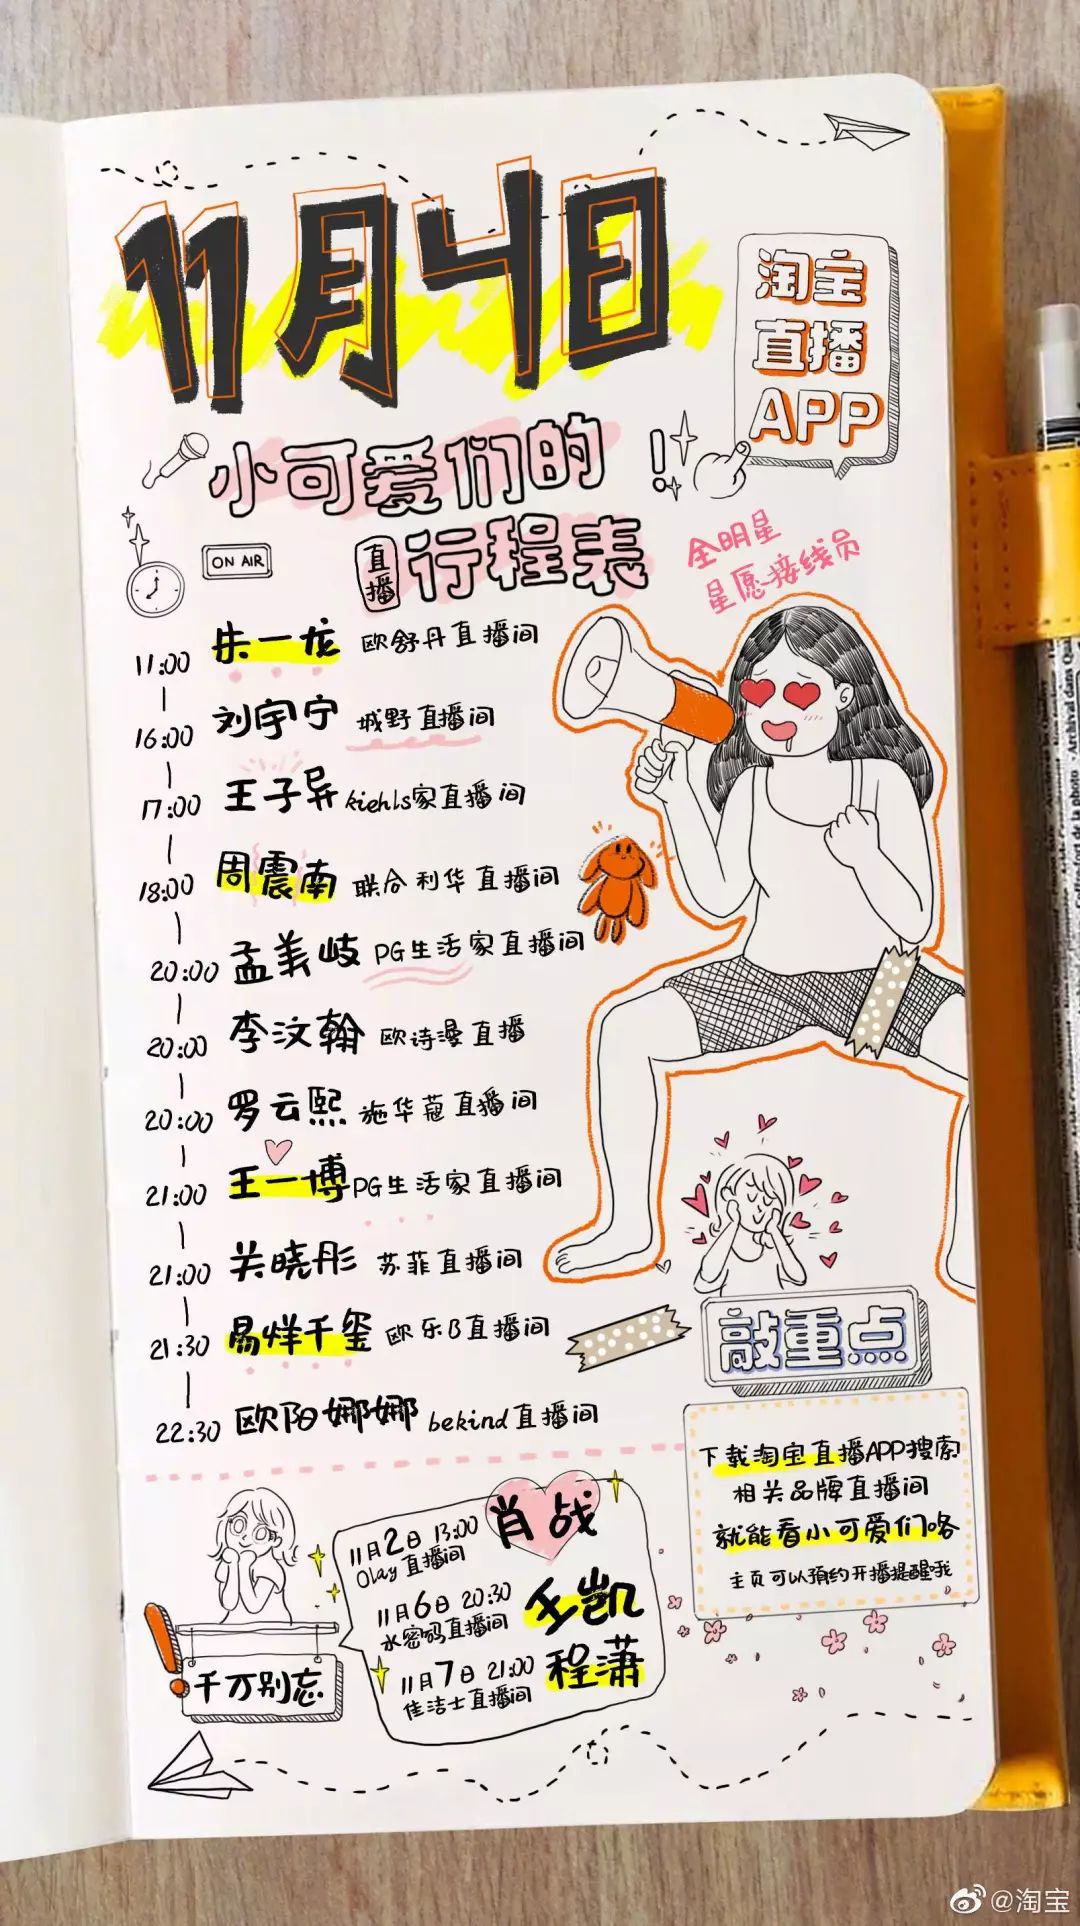 11月4日
淘宝
直播
APP
小可爱们的
直播行程表
ON AIR
全明星
星愿接线员
11:00 朱一龙 欧舒丹直播间
16:00 刘宇宁 城野直播间
17:00 王子异 kiehls家直播间
18:00 周震南 联合利华直播间
20:00 孟美岐 PG生活家直播间
20:00 李汶翰 欧诗漫直播
20:00 罗云熙 施华蔻直播间
21:00 王一博 PG生活家直播间
21:00 关晓彤 苏菲直播间
21:30 易烊千玺 欧乐B直播间
22:30 欧阳娜娜 bekind直播间
敲重点
下载淘宝直播APP搜索
相关品牌直播间
就能看小可爱们咯
主页可以预约开播提醒哦
千万别忘
11月2日 13:00 肖战
Olay直播间
11月6日 20:30 王凯
水密码直播间
11月7日 21:00 程潇
佳洁士直播间
@淘宝